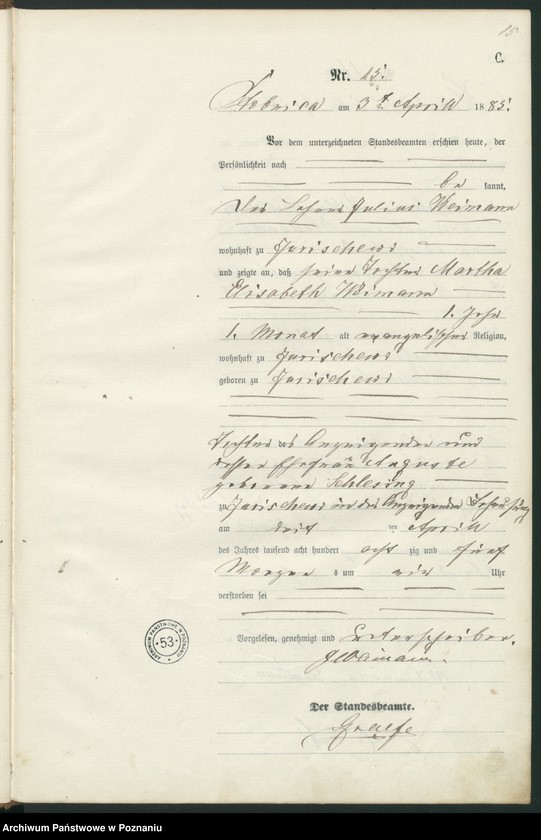 15
C.
Nr. 15.
am 3t April 1885.
Vor dem unterzeichneten Standesbeamten erschien heute, der
Persönlichkeit nach
be kannt,
Julius Weimann
wohnhaft zu
und zeigte an, daß seine Tochter Martha
Elisabeth Weimann
1. Jahr
1. Monat alt evangelischer Religion,
wohnhaft zu
geboren zu
Tochter des Anzeigenden und
dessen Ehefrau Auguste
geborene Schlesing
zu in des Anzeigenden
am drit ten April
des Jahres tausend acht hundert acht zig und fünf
Morgen s um vier Uhr
verstorben sei
Vorgelesen, genehmigt und unterschrieben.
JWeimann.
Der Standesbeamte.
Graefe
ARCHIWUM PAŃSTWOWE W POZNANIU
53
Archiwum Państwowe w Poznaniu